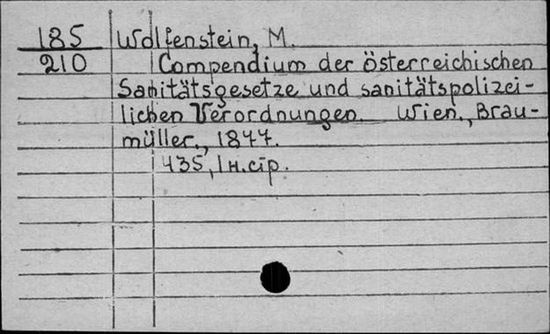 185 Wolfenstein, M.
210 Compendium der österreichischen
Sanitätsgesetze und sanitätspolizei-
lichen Verordnungen Wien., Brau-
müller., 1877.
435, 1 н.стр.